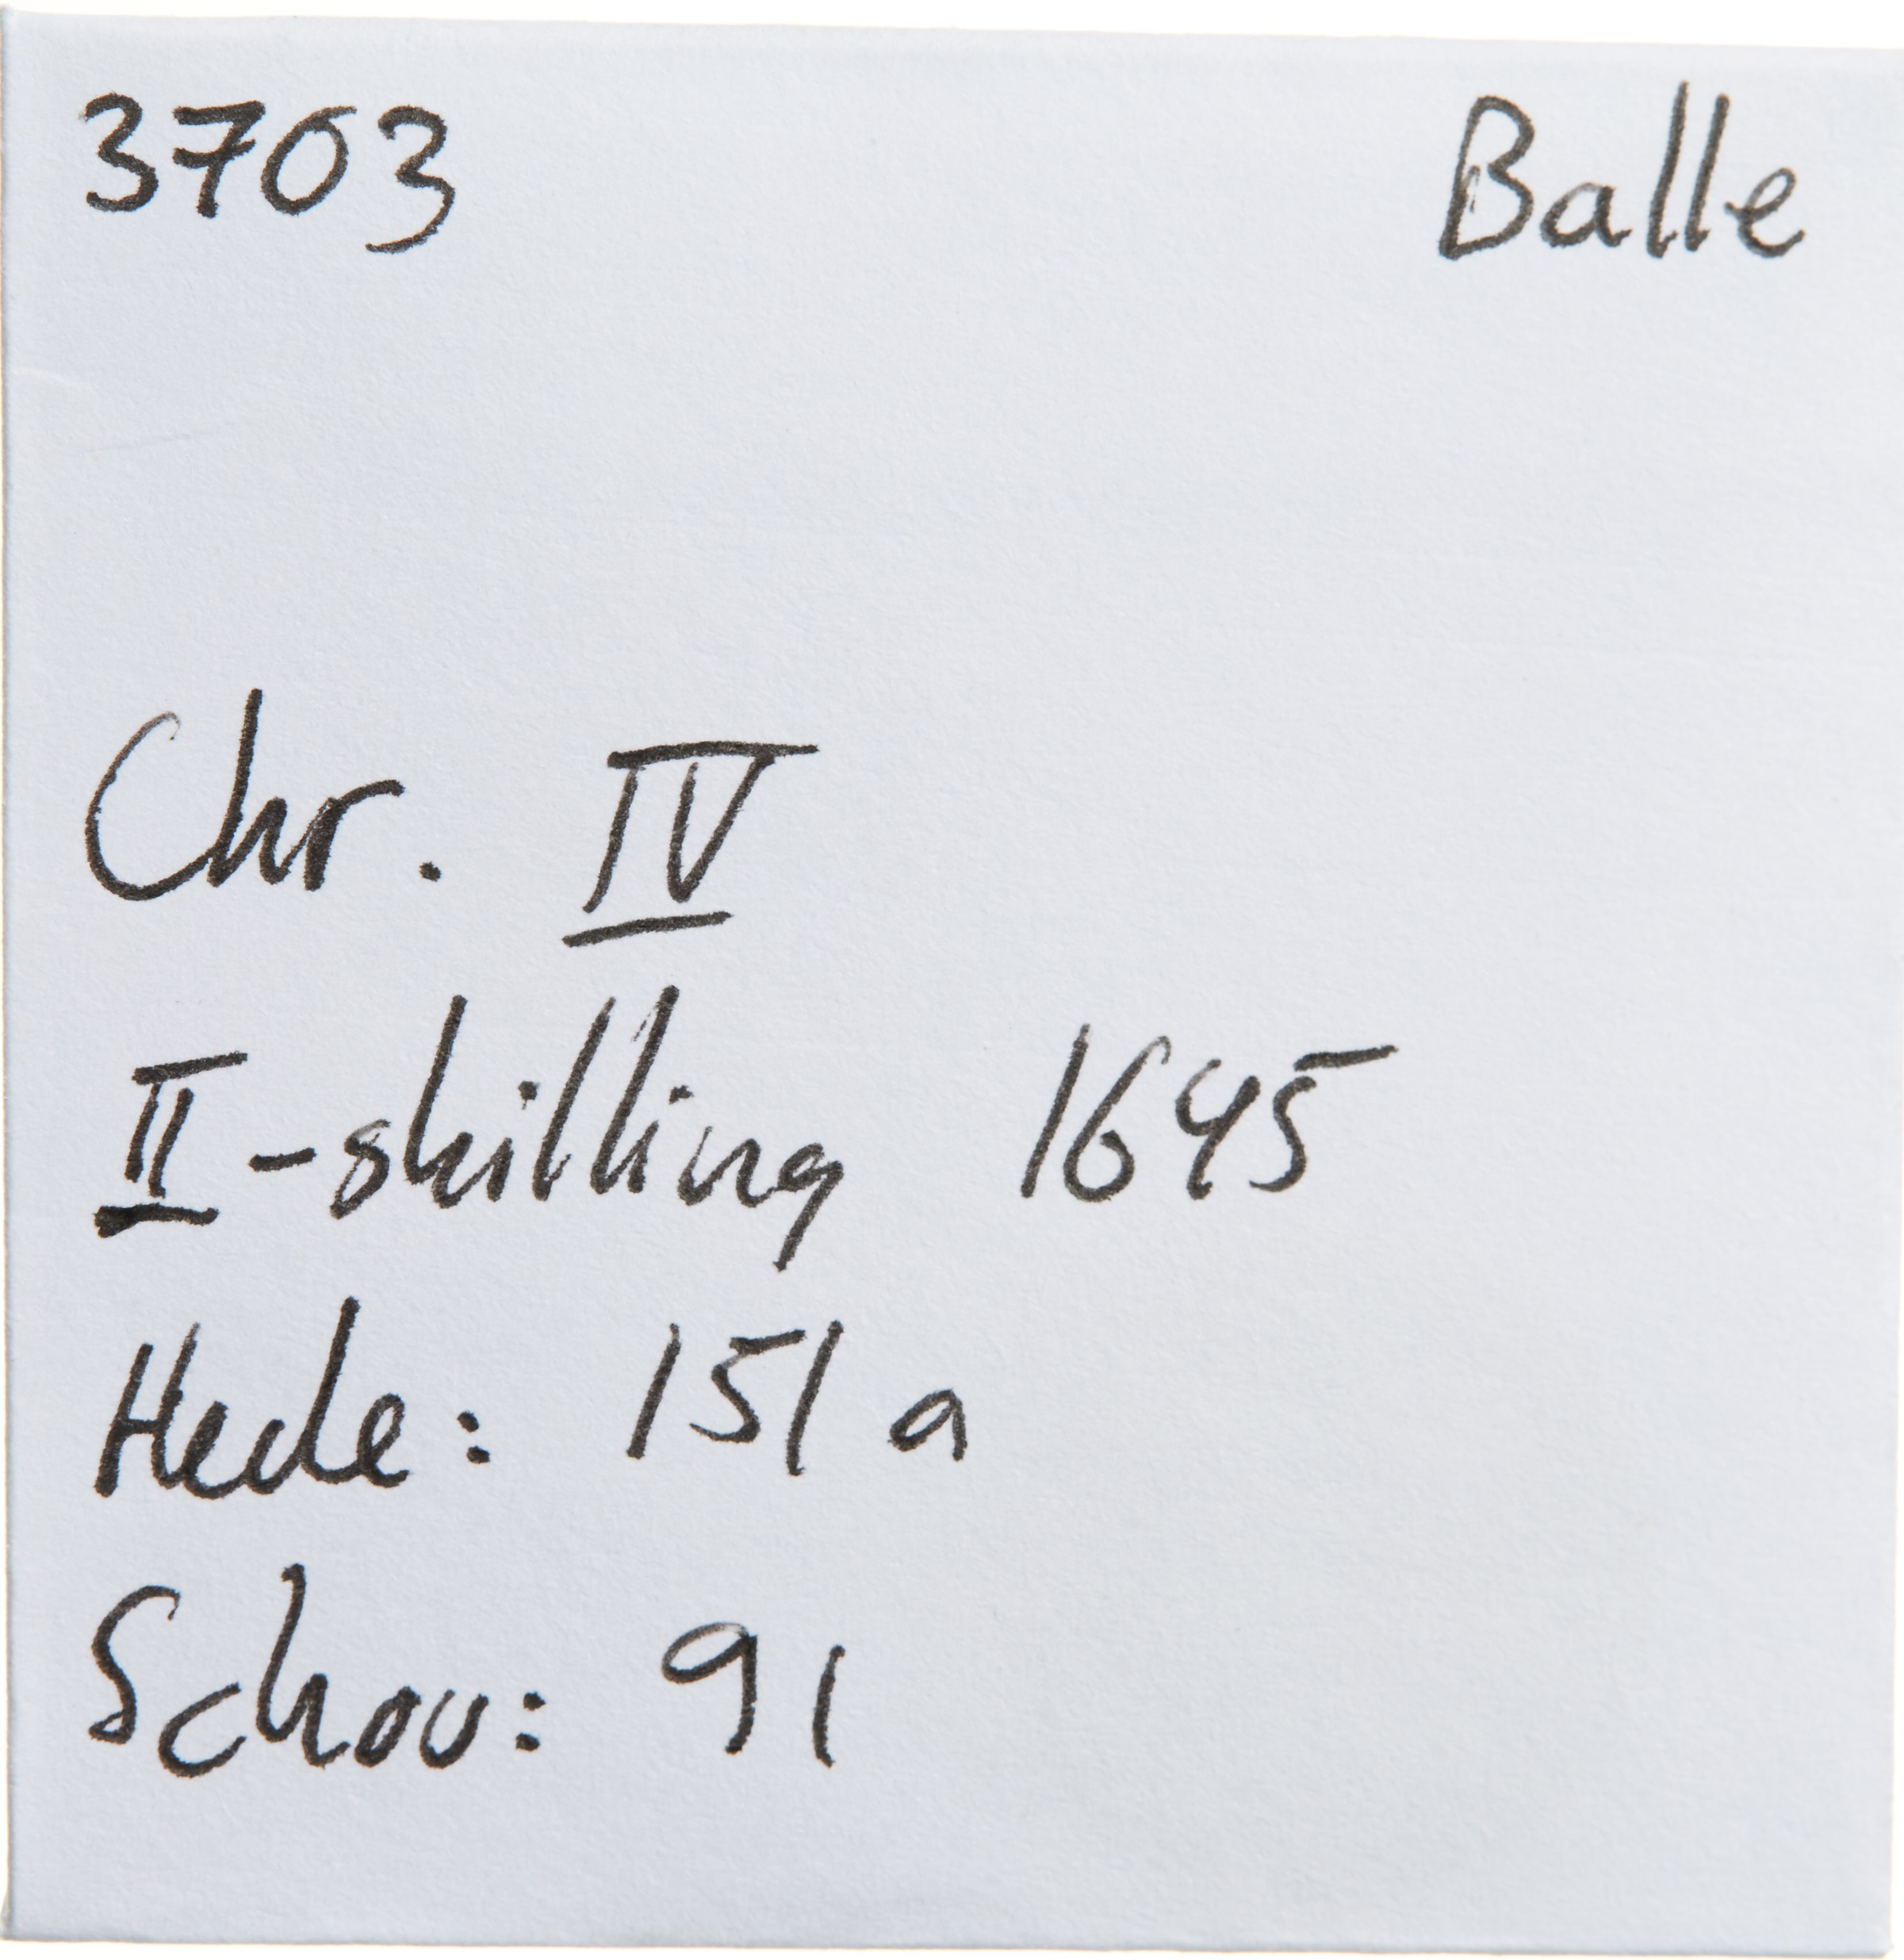 3703 Balle
Chr. IV
II-skilling 1645
Hede: 151 a
Schou: 91